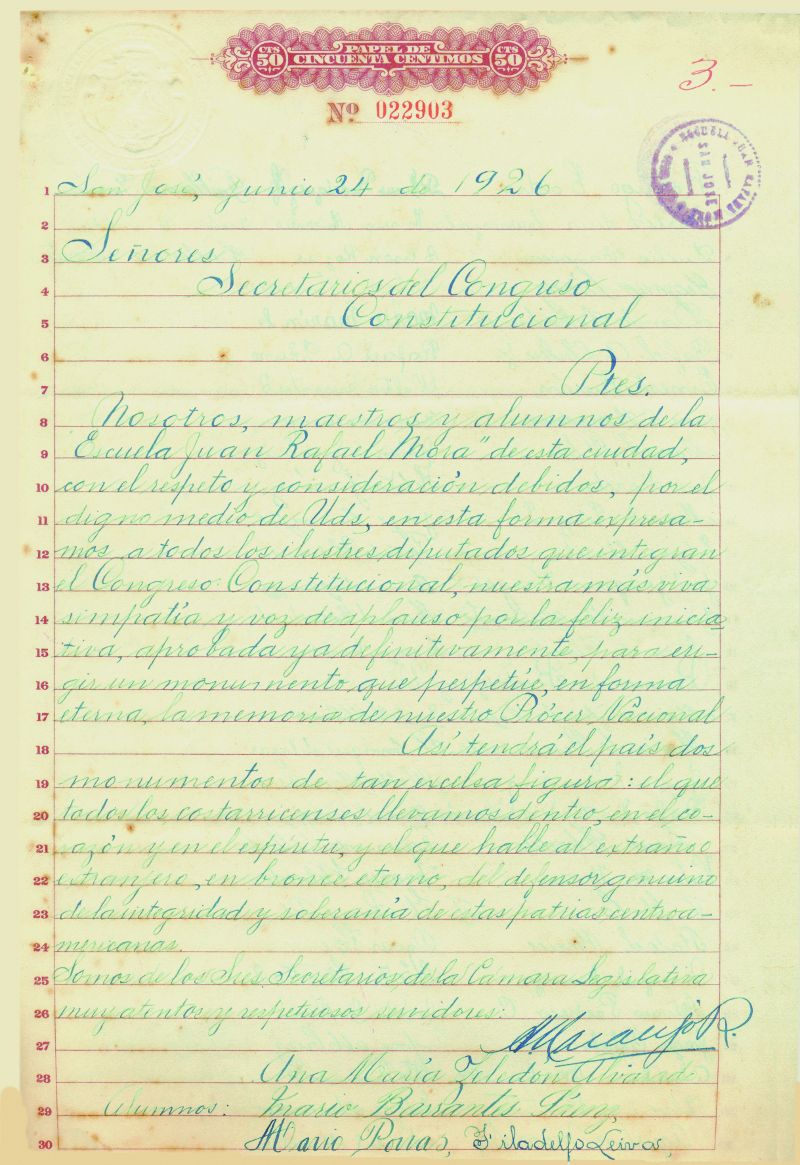 CTS 50 PAPEL DE CINCUENTA CENTIMOS CTS 50
Nº 022903
3.-
ESCUELA JUAN RAFAEL MORA
SAN JOSE
1 San José, junio 24 de 1926
2
3 Señores
4 Secretarios del Congreso
5 Constitucional
6
7 Ptes.
8 Nosotros, maestros y alumnos de la
9 Escuela Juan Rafael Mora" de esta ciudad,
10 con el respeto y consideración debidos, por el
11 digno medio de Uds, en esta forma expresa-
12 mos a todos los ilustres diputados que integran
13 el Congreso Constitucional, nuestra más viva
14 simpatía y voz de aplauso por la feliz inicia-
15 tiva, aprobada ya definitivamente, para eri-
16 gir un monumento que perpetúe, en forma
17 eterna, la memoria de nuestro Prócer Nacional
18 Así tendrá el país dos
19 monumentos de tan excelsa figura: el que
20 todos los costarricenses llevamos dentro, en el co-
21 razón y en el espíritu, y el que hable al extraño o
22 extranjero, en bronce eterno, del defensor genuino
23 de la integridad y soberanía de estas patrias centroa-
24 mericanas.
25 Somos de los Sres. Secretarios de la Camara Legislativa
26 muy atentos y respetuosos servidores:
27
28 Ana María Zeledón Alvarado
29 Alumnos: Mario Barrantes Sáenz,
30 Mario Porras, Filadelfo Leiva,